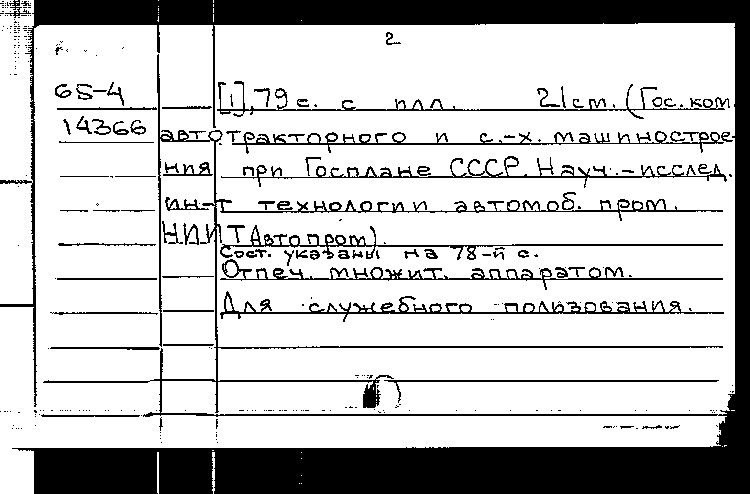 2
65-4 [1], 79 с. с илл. 21 см. (Гос. ком.
14366 автотракторного и с.-х. машинострое-
ния при Госплане СССР. Науч.-исслед.
ин-т технологии автомоб. пром.
НИИТАвтопром).
Сост. указаны на 78-й с.
Отпеч. множит. аппаратом.
Для служебного пользования.